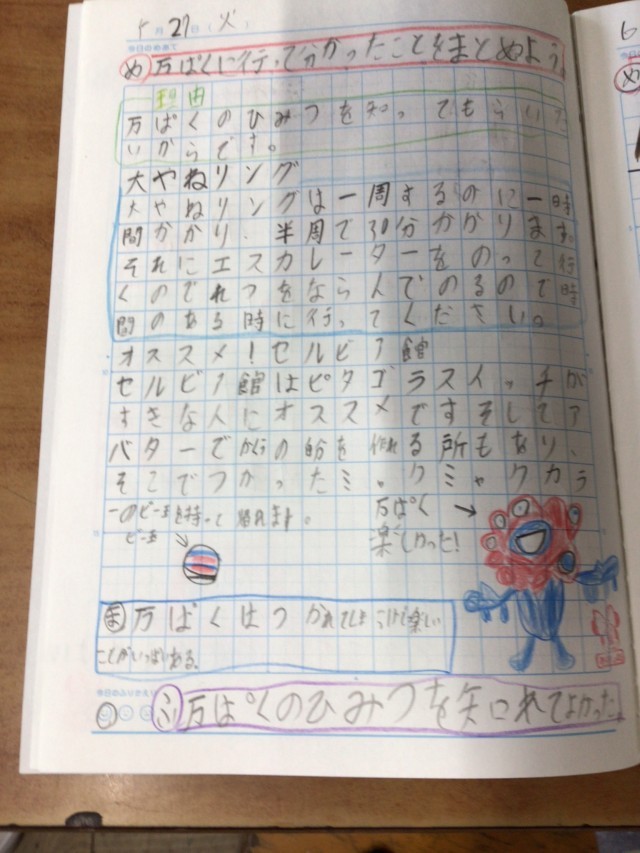 5月27日(火)
今日のめあて
め 万ぱくに行って分かったことをまとめよう
理由
万ぱくのひみつを知ってもらいた
いからです。
大やねリング
大やねリングは一周するのに一時
間かかり、半周で30分かかります。
それにエスカレーターをのって行
くのでれつをならんでのるので時
間のある時に行ってください。
オススメ!セルビア館
セルビア館はピタゴラスイッチが
すきな人にオススメですそしてア
バターで の 分を作れる所もあり、
そこでつかったミャクミャクカラ
ーのビー玉を持って帰れます。
ビー玉
万ぱく
楽しかった!
ま 万ぱくはつかれてしまうけど楽しい
ことがいっぱいある。
今日のふりかえり
ふ 万ぱくのひみつを知れてよかった。
6
め